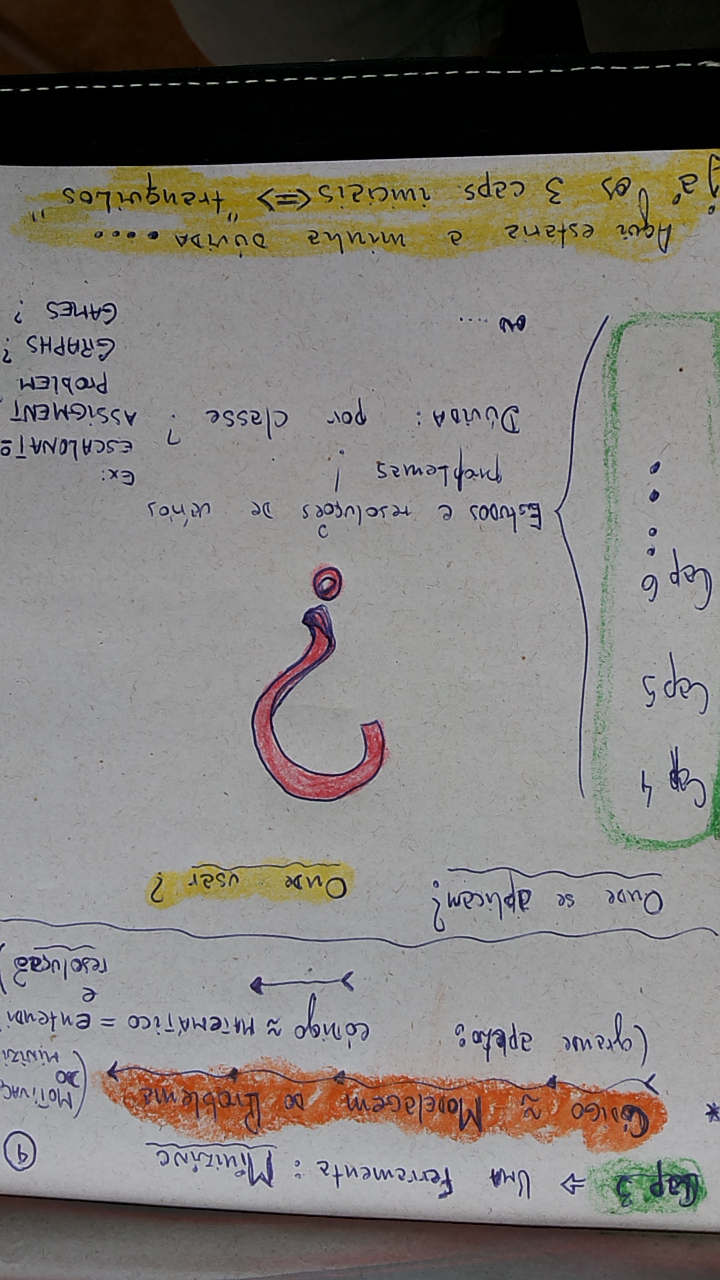 Cap 3 ⇒ UMA Ferramenta: Minizinc
①
* CÓDIGO ≈ MODELAGEM DO PROBLEMA
(MOTIVAÇ
DO
MINIZI
(grande apelo: CÓDIGO ≈ MATEMÁTICO = ENTENDI
e
resolução)
ONDE se aplicam?
ONDE usar?
Cap 4
Cap 5
Cap 6
?
ESTUDOS e resoluções de vários
problemas
Ex:
ESCALONATO
DÚVIDA: por classe ?
ASSIGMENT
PROBLEM
GRAPHS ?
GAMES ?
ou ....
AQUI estaria a minha DÚVIDA ....
já os 3 caps iniciais <=> "tranquilos"